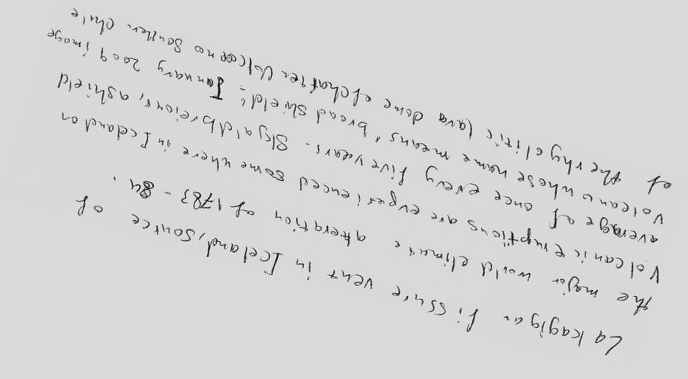 Lakagigar fissure vent in Iceland, source of
the major world climate alteration of 1783 - 84.
Volcanic eruptions are experienced somewhere in Iceland on
average of once every five years. Skjaldbreiour, a shield
Volcano whose name means "broad shield": January 2009 image
of the rhyolitic lava dome of Chaiten Volcano Southern Chile